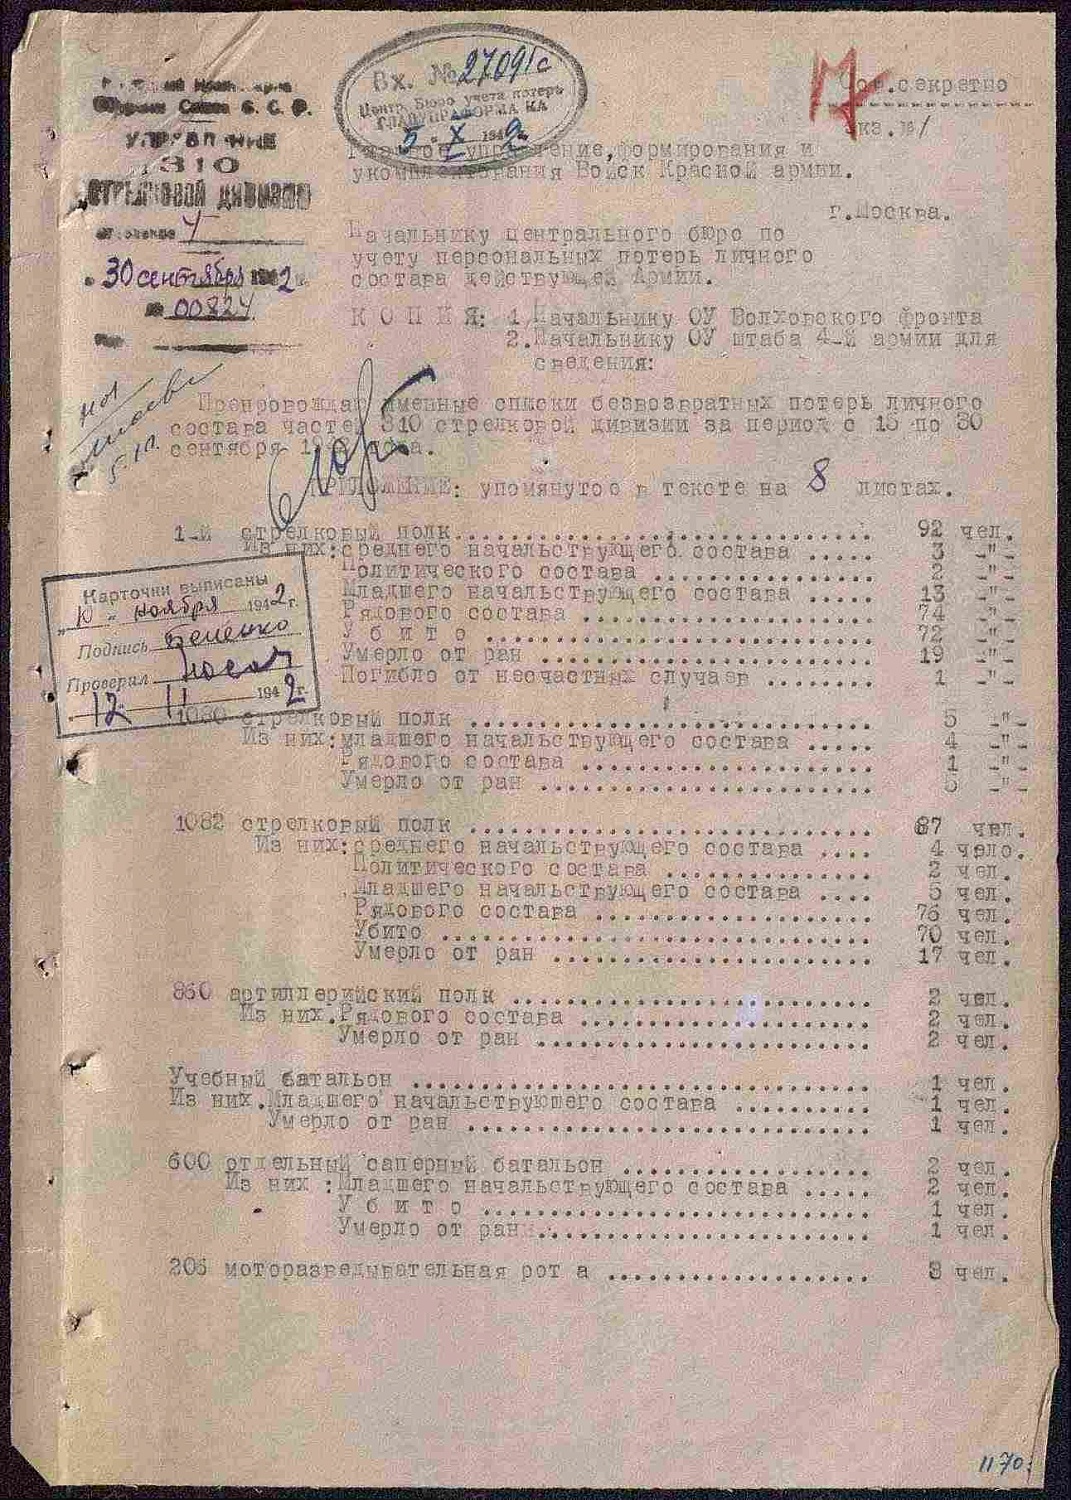 Вх. № 27091с
Центр. Бюро учета потерь
ГЛАВУПРАФОРМА КА
5 X 1942
Сов.секретно
экз.№1
УПРАВЛЕНИЕ
310
СТРЕЛКОВОЙ ДИВИЗИИ
Отделение 4
30 сентября 1942 г.
№ 00824
Главное управление, формирования и
укомплектования Войск Красной армии.
г.Москва.
Начальнику центрального бюро по
учету персональных потерь личного
состава действующей Армии.
К О П И Я: 1.Начальнику ОУ Волховского фронта
2.Начальнику ОУ штаба 4-й армии для
сведения:
5.10.
Препровождаю именные списки безвозвратных потерь личного
состава частей 310 стрелковой дивизии за период с 15 по 30
сентября
ПРИЛОЖЕНИЕ: упомянутое в тексте на 8 листах.
1-й стрелковый полк................................ 92 чел.
Из них:среднего начальствующего состава ..... 3 -"-
Политического состава ................ 2 -"-
Младшего начальствующего состава ..... 13 -"-
Рядового состава ..................... 74 -"-
У б и т о ............................ 72 -"-
Умерло от ран ........................ 19 -"-
Погибло от несчастных случаев ........ 1 -"-
Карточки выписаны
"10" ноября 1942г.
Подпись
Проверил
12 11 1942г.
1080 стрелковый полк .............................. 5 -"-
Из них:младшего начальствующего состава ..... 4 -"-
Рядового состава ..................... 1 -"-
Умерло от ран ........................ 5 -"-
1082 стрелковый полк .............................. 87 чел.
Из них:среднего начальствующего состава .... 4 чело.
Политического состава ............... 2 чел.
Младшего начальствующего состава .... 5 чел.
Рядового состава .................... 76 чел.
Убито ............................... 70 чел.
Умерло от ран ....................... 17 чел.
860 артиллерийский полк ........................... 2 чел.
Из них.Рядового состава ...................... 2 чел.
Умерло от ран ......................... 2 чел.
Учебный батальон .................................. 1 чел.
Из них.Младшего начальствующего состава .......... 1 чел.
Умерло от ран ............................. 1 чел.
600 отдельный саперный батальон ................... 2 чел.
Из них :Младшего начальствующего состава ..... 2 чел.
У б и т о ............................. 1 чел.
Умерло от ран.......................... 1 чел.
206 моторазведывательная рот а .................... 3 чел.
1170